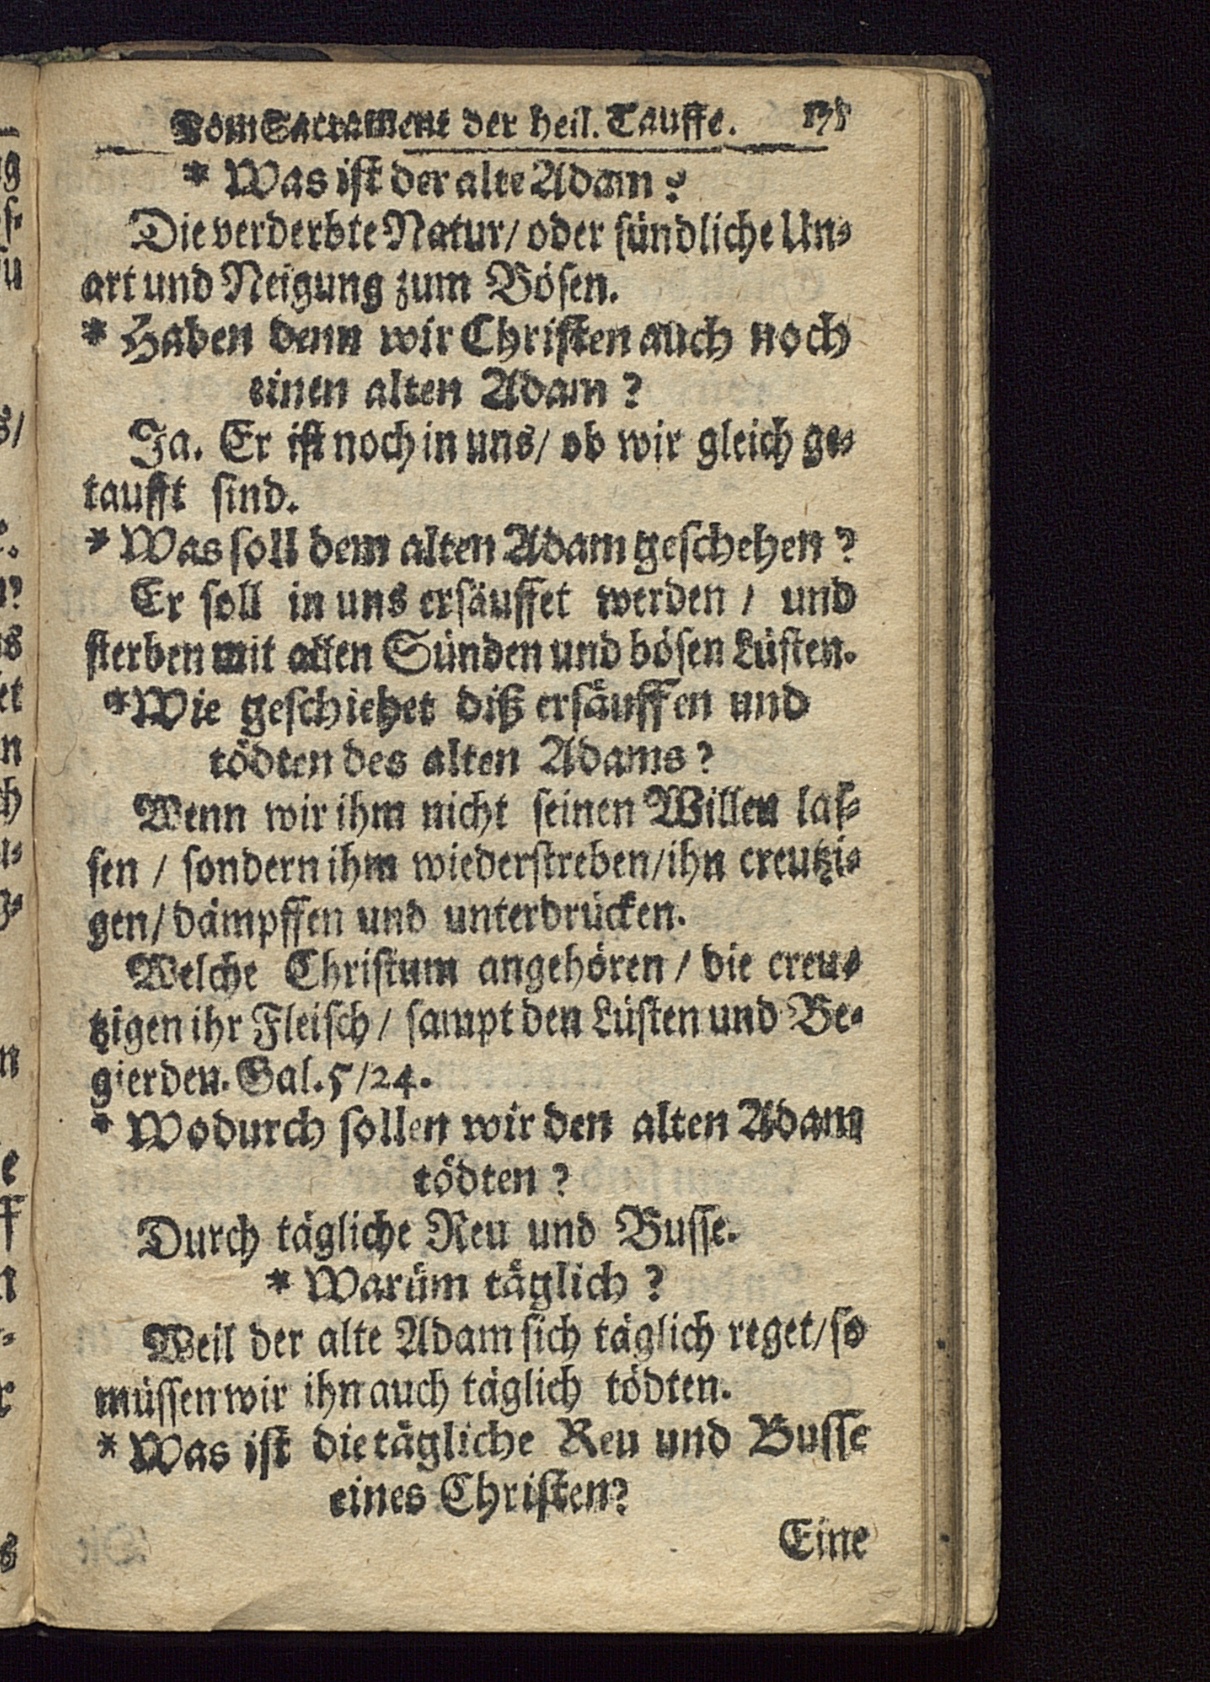 Vom Sacrament der heil. Tauffe.
* Was ist der alte Adam?
Die verderbte Natur/ oder sündliche Un-
art und Neigung zum Bösen.
* Haben denn wir Christen auch noch
einen alten Adam?
Ja. Er ist noch in uns/ ob wir gleich ge-
taufft sind.
* Was soll dem alten Adam geschehen?
Er soll in uns ersäuffet werden / und
sterben mit allen Sünden und bösen Lüsten.
* Wie geschiehet diß ersäuffen und
tödten des alten Adams?
Wenn wir ihm nicht seinen Willen las-
sen / sondern ihm wiederstreben/ ihn creutzi-
gen/ dämpffen und unterdrücken.
Welche Christum angehören / die creu-
tzigen ihr Fleisch / sampt den Lüsten und Be-
gierden. Gal. 5/24.
* Wodurch sollen wir den alten Adam
tödten?
Durch tägliche Reu und Busse.
* Warüm täglich?
Weil der alte Adam sich täglich reget/ so
müssen wir ihn auch täglich tödten.
* Was ist die tägliche Reu und Busse
eines Christen?
Eine